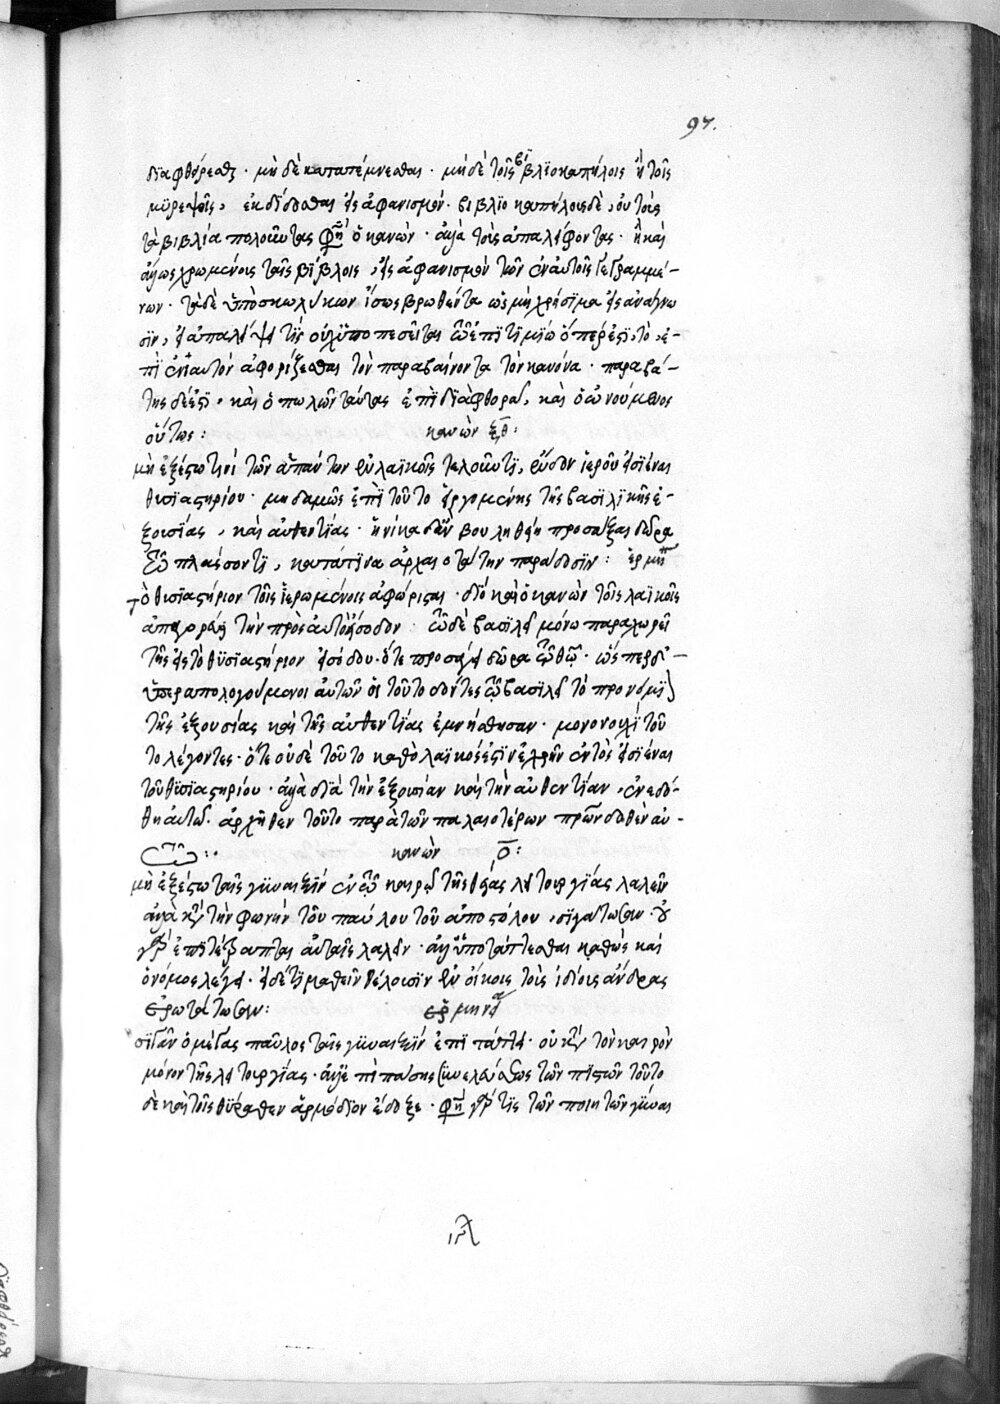 97.
διαφθείρεσθαι · μὴ δὲ κατατέμνεσθαι · μὴ δὲ τοῖς βιβλιοκαπήλοις ἢ τοῖς
μυρεψοῖς, ἐκδίδοσθαι εἰς ἀφανισμόν · βιβλιοκαπήλοις δὲ, οὐ τοὺς
τὰ βιβλία πωλοῦντας φησὶ ὁ κανὼν · ἀλλὰ τοὺς ἀπαλείφοντας · ἢ καὶ
ἄλλως χρωμένοις ταῖς βίβλοις, εἰς ἀφανισμὸν τῶν ἐν αὐτοῖς γεγραμμέ-
νων · τὰ δὲ ὑπὸ σκωλήκων ἴσως βρωθέντα ὡς μὴ χρήσιμα εἰς ἀνάγνω
σιν, εἰ ἀπαλείψει τις οὐχ ὑποπεσεῖται τῷ ἐπιτιμίῳ ὅπερ ἐστὶ, τὸ, ἐ-
πὶ ἐνιαυτὸν ἀφορίζεσθαι τὸν παραβαίνοντα τὸν κανόνα · παραβά-
της δέ ἐστι · καὶ ὁ πωλῶν ταύτας ἐπὶ διαφθορᾷ, καὶ ὁ ὠνούμενος
οὕτως : κανὼν ξθ :
μὴ ἐξέστω τινὶ τῶν ἁπάντων ἐν λαϊκοῖς τελοῦντι, ἔνδον ἱεροῦ εἰσιέναι
θυσιαστηρίου · μηδαμῶς ἐπὶ τοῦτο εἰργομένης τῆς βασιλικῆς ἐ-
ξουσίας, καὶ αὐθεντίας · ἡνίκα δ' ἂν βουληθείη προσάξαι δῶρα
τῷ πλάσαντι, κατά τινα ἀρχαιοτάτην παράδοσιν : ἑρμη
τὸ θυσιαστήριον τοῖς ἱερωμένοις ἀφώρισται · διὸ καὶ ὁ κανὼν τοῖς λαϊκοῖς
ἀπαγορεύει τὴν πρὸς αὐτὸ εἴσοδον · τῷ δὲ βασιλεῖ μόνῳ παραχωρεῖ
τῆς εἰς τὸ θυσιαστήριον εἰσόδου · ὅτε προσάγει δῶρα τῷ θεῷ · ὥσπερ δὲ-
ὑπεραπολογούμενοι αὐτῶν οἱ τοῦτο δόντες τῷ βασιλεῖ τὸ προνόμιον
τῆς ἐξουσίας καὶ τῆς αὐθεντίας ἐμνήσθησαν · μονονουχὶ τοῦ
το λέγοντες · ὅτι οὐδὲ τοῦτο καθὸ λαϊκός ἐστιν ἔλαβεν ἐντὸς εἰσιέναι
τοῦ θυσιαστηρίου · ἀλλὰ διὰ τὴν ἐξουσίαν καὶ τὴν αὐθεντίαν, ἐνεδό-
θη αὐτῷ · ἀρχῆθεν τοῦτο παρὰ τῶν παλαιοτέρων πρῶν δοθὲν αὐ-
τῷ :· κανὼν ο :
μὴ ἐξέστω ταῖς γυναιξὶν ἐν τῷ καιρῷ τῆς θείας λειτουργίας λαλεῖν
ἀλλὰ κατὰ τὴν φωνὴν τοῦ παύλου τοῦ ἀποστόλου, σιγάτωσαν · οὐ
γὰρ ἐπιτέτραπται αὐταῖς λαλεῖν · ἀλλ' ὑποτάττεσθαι καθὼς καὶ
ὁ νόμος λέγει · εἰ δέ τι μαθεῖν θέλουσιν ἐν οἴκοις τοὺς ἰδίους ἄνδρας
ἐρωτάτωσαν : ἑρμηνεία
σιγᾶν ὁ μέγας παῦλος ταῖς γυναιξὶν ἐπιτάττει · οὐ κατὰ τὸν καιρὸν
μόνον τῆς λειτουργίας · ἀλλ' ἐπὶ πάσης συνελεύσεως τῶν πιστῶν τοῦτο
δὲ καὶ τοῖς θύραθεν ἁρμόδιον ἔδοξε · φησὶ γάρ τις τῶν ποιητῶν γύναι